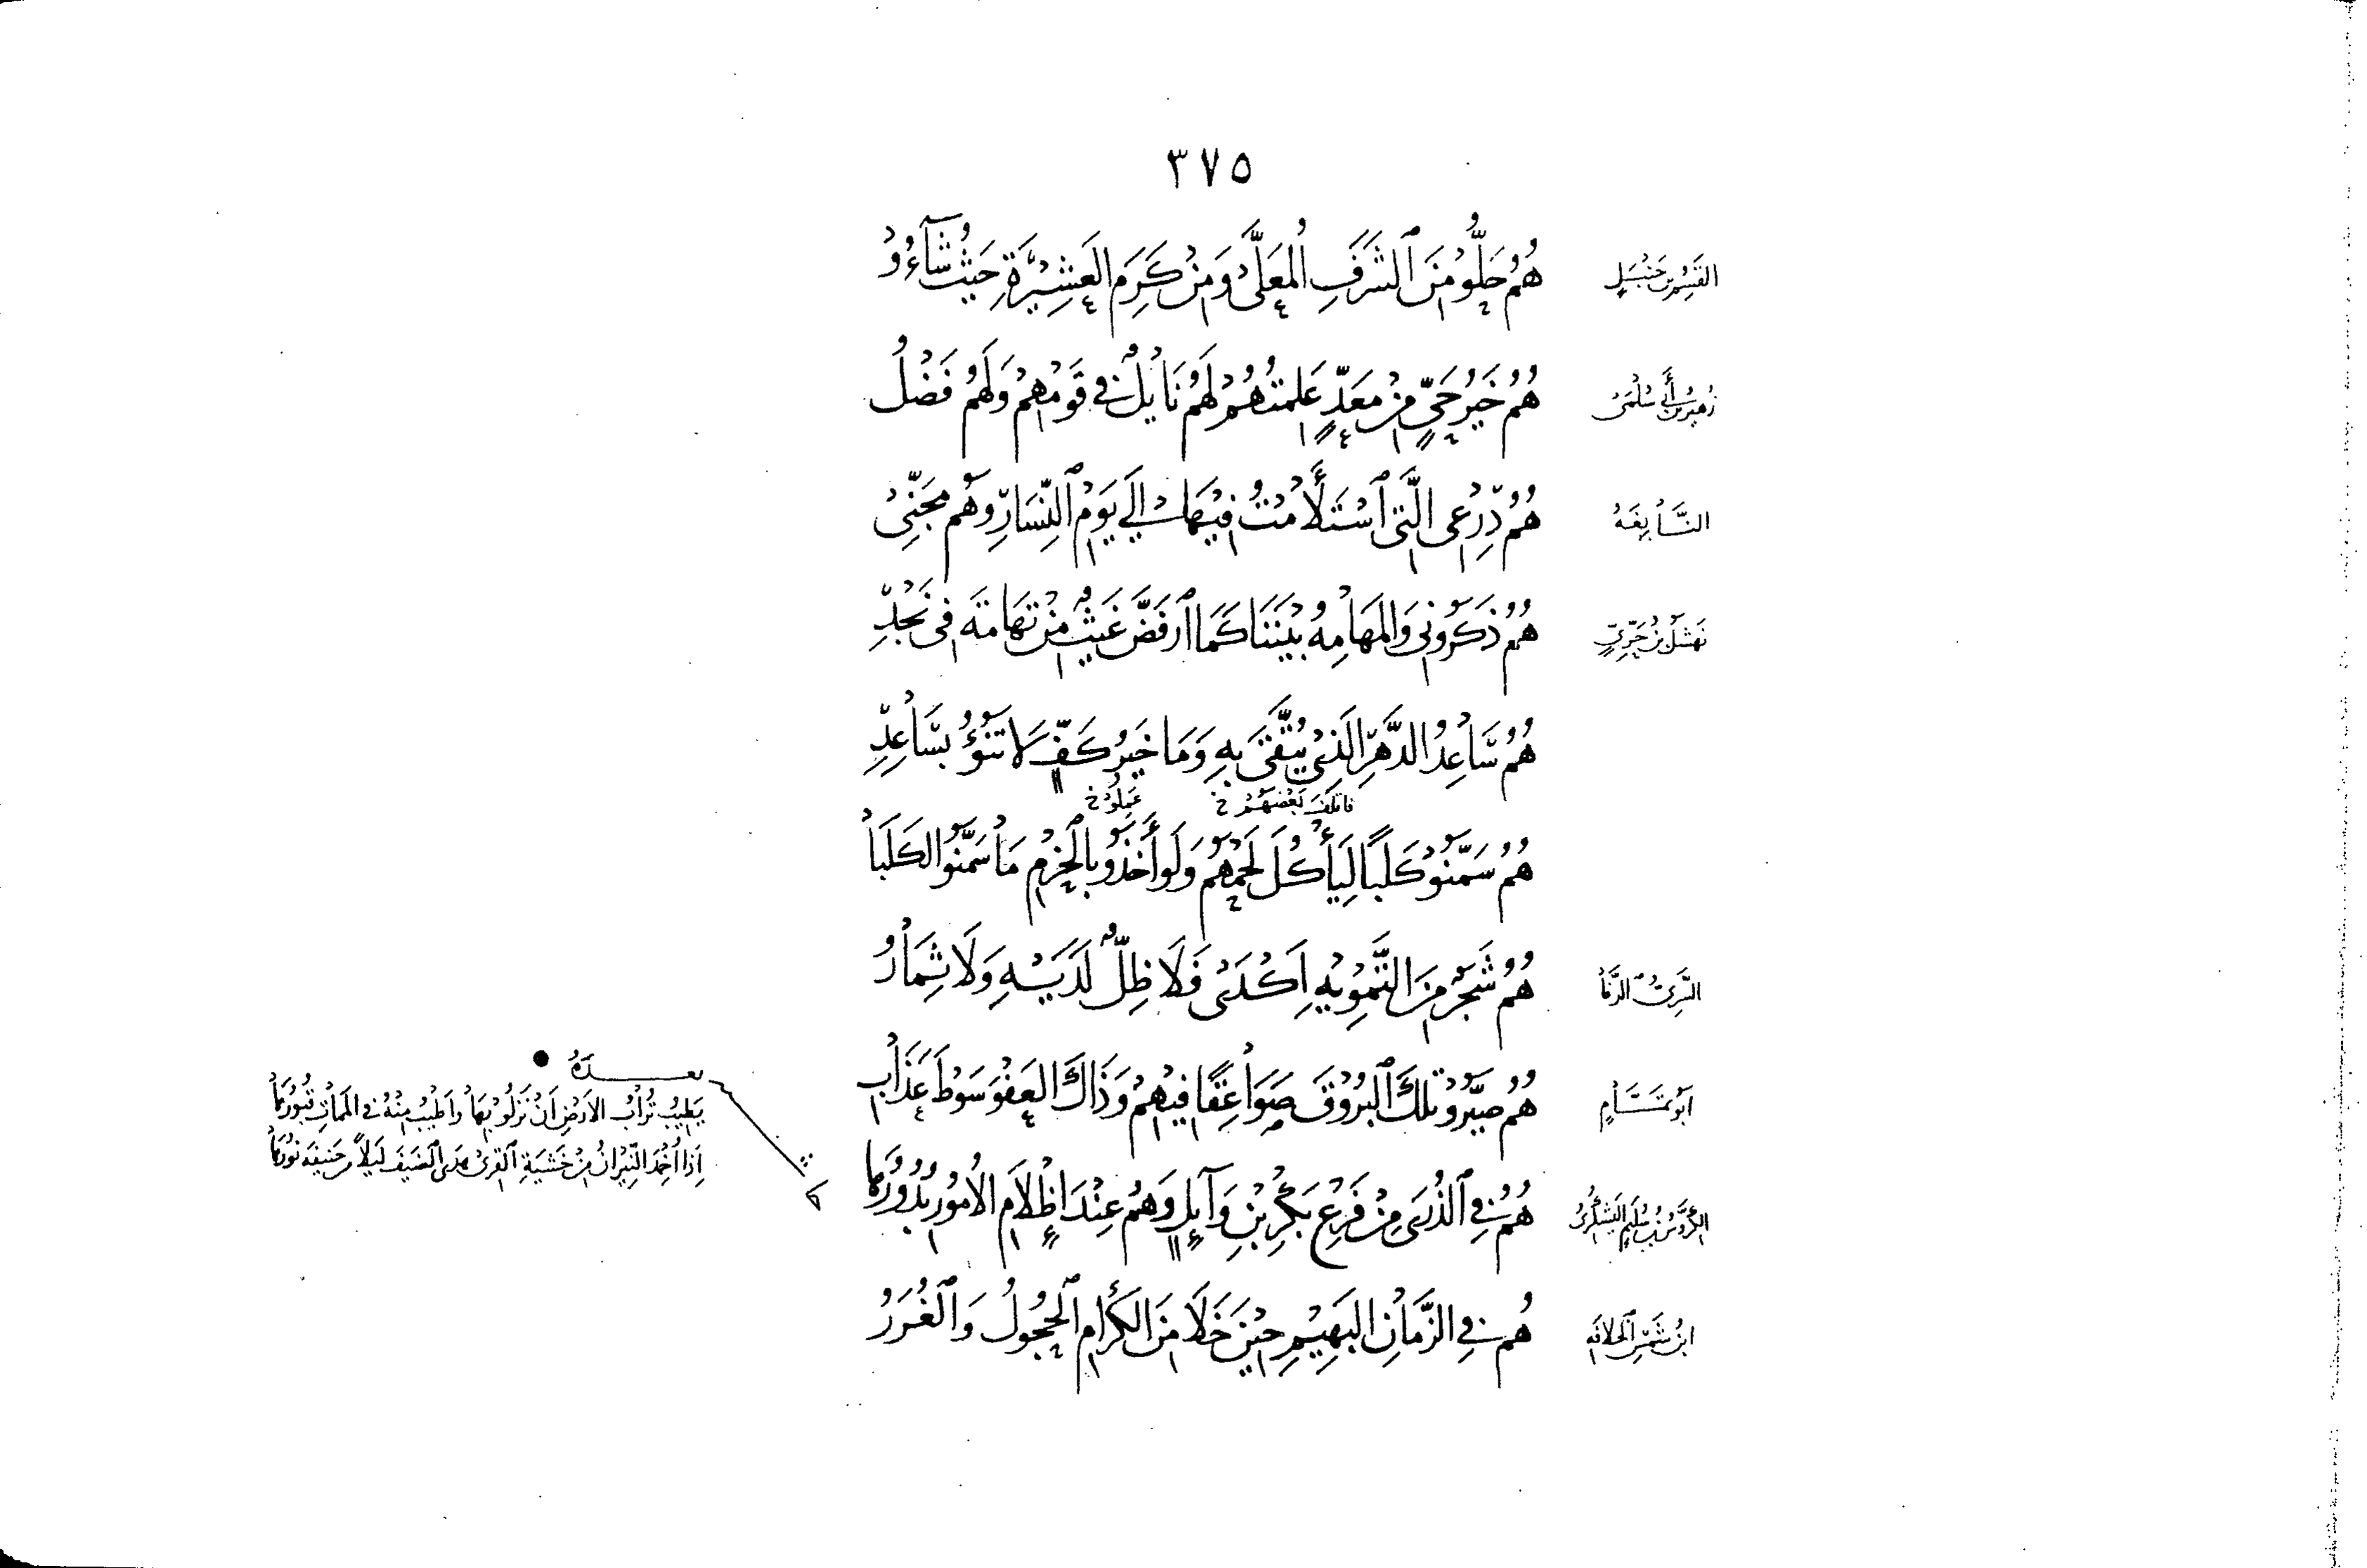 ٣٧٥
القَسِمُ بن حَنْبَلٍ
هُمُ حَلُّوْ مِنَ ٱلشَرَفِ المُعَلَّىْ وَمِنْ كَرَمِ العَشِيْرَةِ حَيْثُ شَآءُوْ
زهير بن أبي سُلْمَىْ
هُمُ خَيْرُ حَيٍّ مِنْ مَعَدٍّ عَلِمْتُهُمْ لَهُمْ نَايُلٌ فِي قَوْمِهِمْ وَلَهُمْ فَضْلُ
النَّابِغَهُ
هُمُ دِرْعِى الَّتِى ٱسْتَلْأَمْتُ فِيْهَا إِلَى يَوْمِ ٱلنِّسَارِ وَهُمْ مِجَنِّىْ
نَهْشَلُ بنُ حَرِّىٍّ
هُمُ ذَكَرُوْنِى وَالمَهَامِهُ بَيْنَنَا كَمَا ٱرْفَضَّ غَيْثٌ مِنْ تَهَامَةَ فِى نَجْدِ
هُمُ سَاعِدُ الدَّهْرِ الَّذِىْ يُتَّقَىَ بِهِ وَمَا خَيْرُ كَفٍّ لَا تَنُوْءُ بِسَاعِدِ
فاتلف بَعْضَهُمْ خ عَمِلُوْ خ
هُمُ سَمَّنُوْ كَلْبًا لِيَأْكُلَ لَحْمَهُمْ وَلَوْ أَخَذُوْ بِالْحَزْمِ مَا سَمَّنُوْا الكَلْبَا
السَّرِىُّ الرَّفَّا
هُمُ شَجَرٌ مِنَ التَّمْوِيْهِ أَكْدَىْ فَلَا ظِلٌّ لَدَيْهِ وَلَا ثِمَارُ
أبو تمَّامٍ
هُمُ صَيَّرُوْ تِلْكَ ٱلْبُرُوْقَ صَوَاعِقًا فِيْهِمْ وَذَاكَ العَفْوَ سَوْطَ عَذَابِ
الكَرَوَّسُ بنُ سُلَيْمٍ اليَشْكُرِىُّ
هُمُ فِي ٱلذُرَى مِنْ فَرْعِ بَكْرِ بْنِ وَآيِلٍ وَهُمْ عِنْدَ إِظْلَامِ الأُمُوْرِ بُدُوْرُهَا
بعــدَهُ
يَطِيْبُ تُرَابُ الأَرْضِ أَنْ نَزَلُوْ بِهَا وأَطْيَبُ مِنْهُ فِي المَمَاتِ قُبُوْرُهَا
إِذَا أُخْمِدَ النِّيْرَانُ مِنْ خَشْيَةِ ٱلقِرَىْ هَدَى ٱلضَيفَ لَيْلًا مِنْ حَنِيفَة نُوْرُهَا
ابنُ شَمْسِ ٱلخلافَه
هُم فِي الزَّمَانِ البَهِيْمِ حِيْنَ خَلَا مِنَ الكِرَامِ ٱلحُجُولُ وَٱلْغُرَرُ